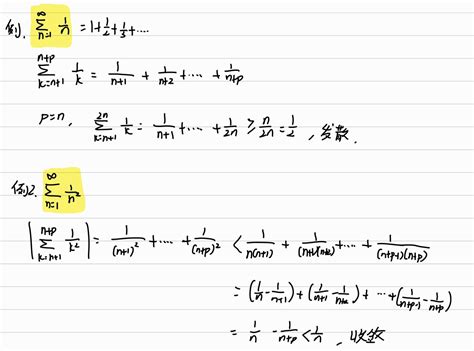 例. $\sum_{n=1}^{\infty} \frac{1}{n} = 1+\frac{1}{2}+\frac{1}{3}+\cdots$
$\sum_{k=n+1}^{n+p} \frac{1}{k} = \frac{1}{n+1} + \frac{1}{n+2} + \cdots + \frac{1}{n+p}$
$p=n, \sum_{k=n+1}^{2n} \frac{1}{k} = \frac{1}{n+1} + \cdots + \frac{1}{2n} \geq \frac{n}{2n} = \frac{1}{2}$, 发散.
例2. $\sum_{n=1}^{\infty} \frac{1}{n^2}$
$\left| \sum_{k=n+1}^{n+p} \frac{1}{k^2} \right| = \frac{1}{(n+1)^2} + \cdots + \frac{1}{(n+p)^2} < \frac{1}{n(n+1)} + \frac{1}{(n+1)(n+2)} + \cdots + \frac{1}{(n+p-1)(n+p)}$
$= (\frac{1}{n} - \frac{1}{n+1}) + (\frac{1}{n+1} - \frac{1}{n+2}) + \cdots + (\frac{1}{n+p-1} - \frac{1}{n+p})$
$= \frac{1}{n} - \frac{1}{n+p} < \frac{1}{n}$, 收敛